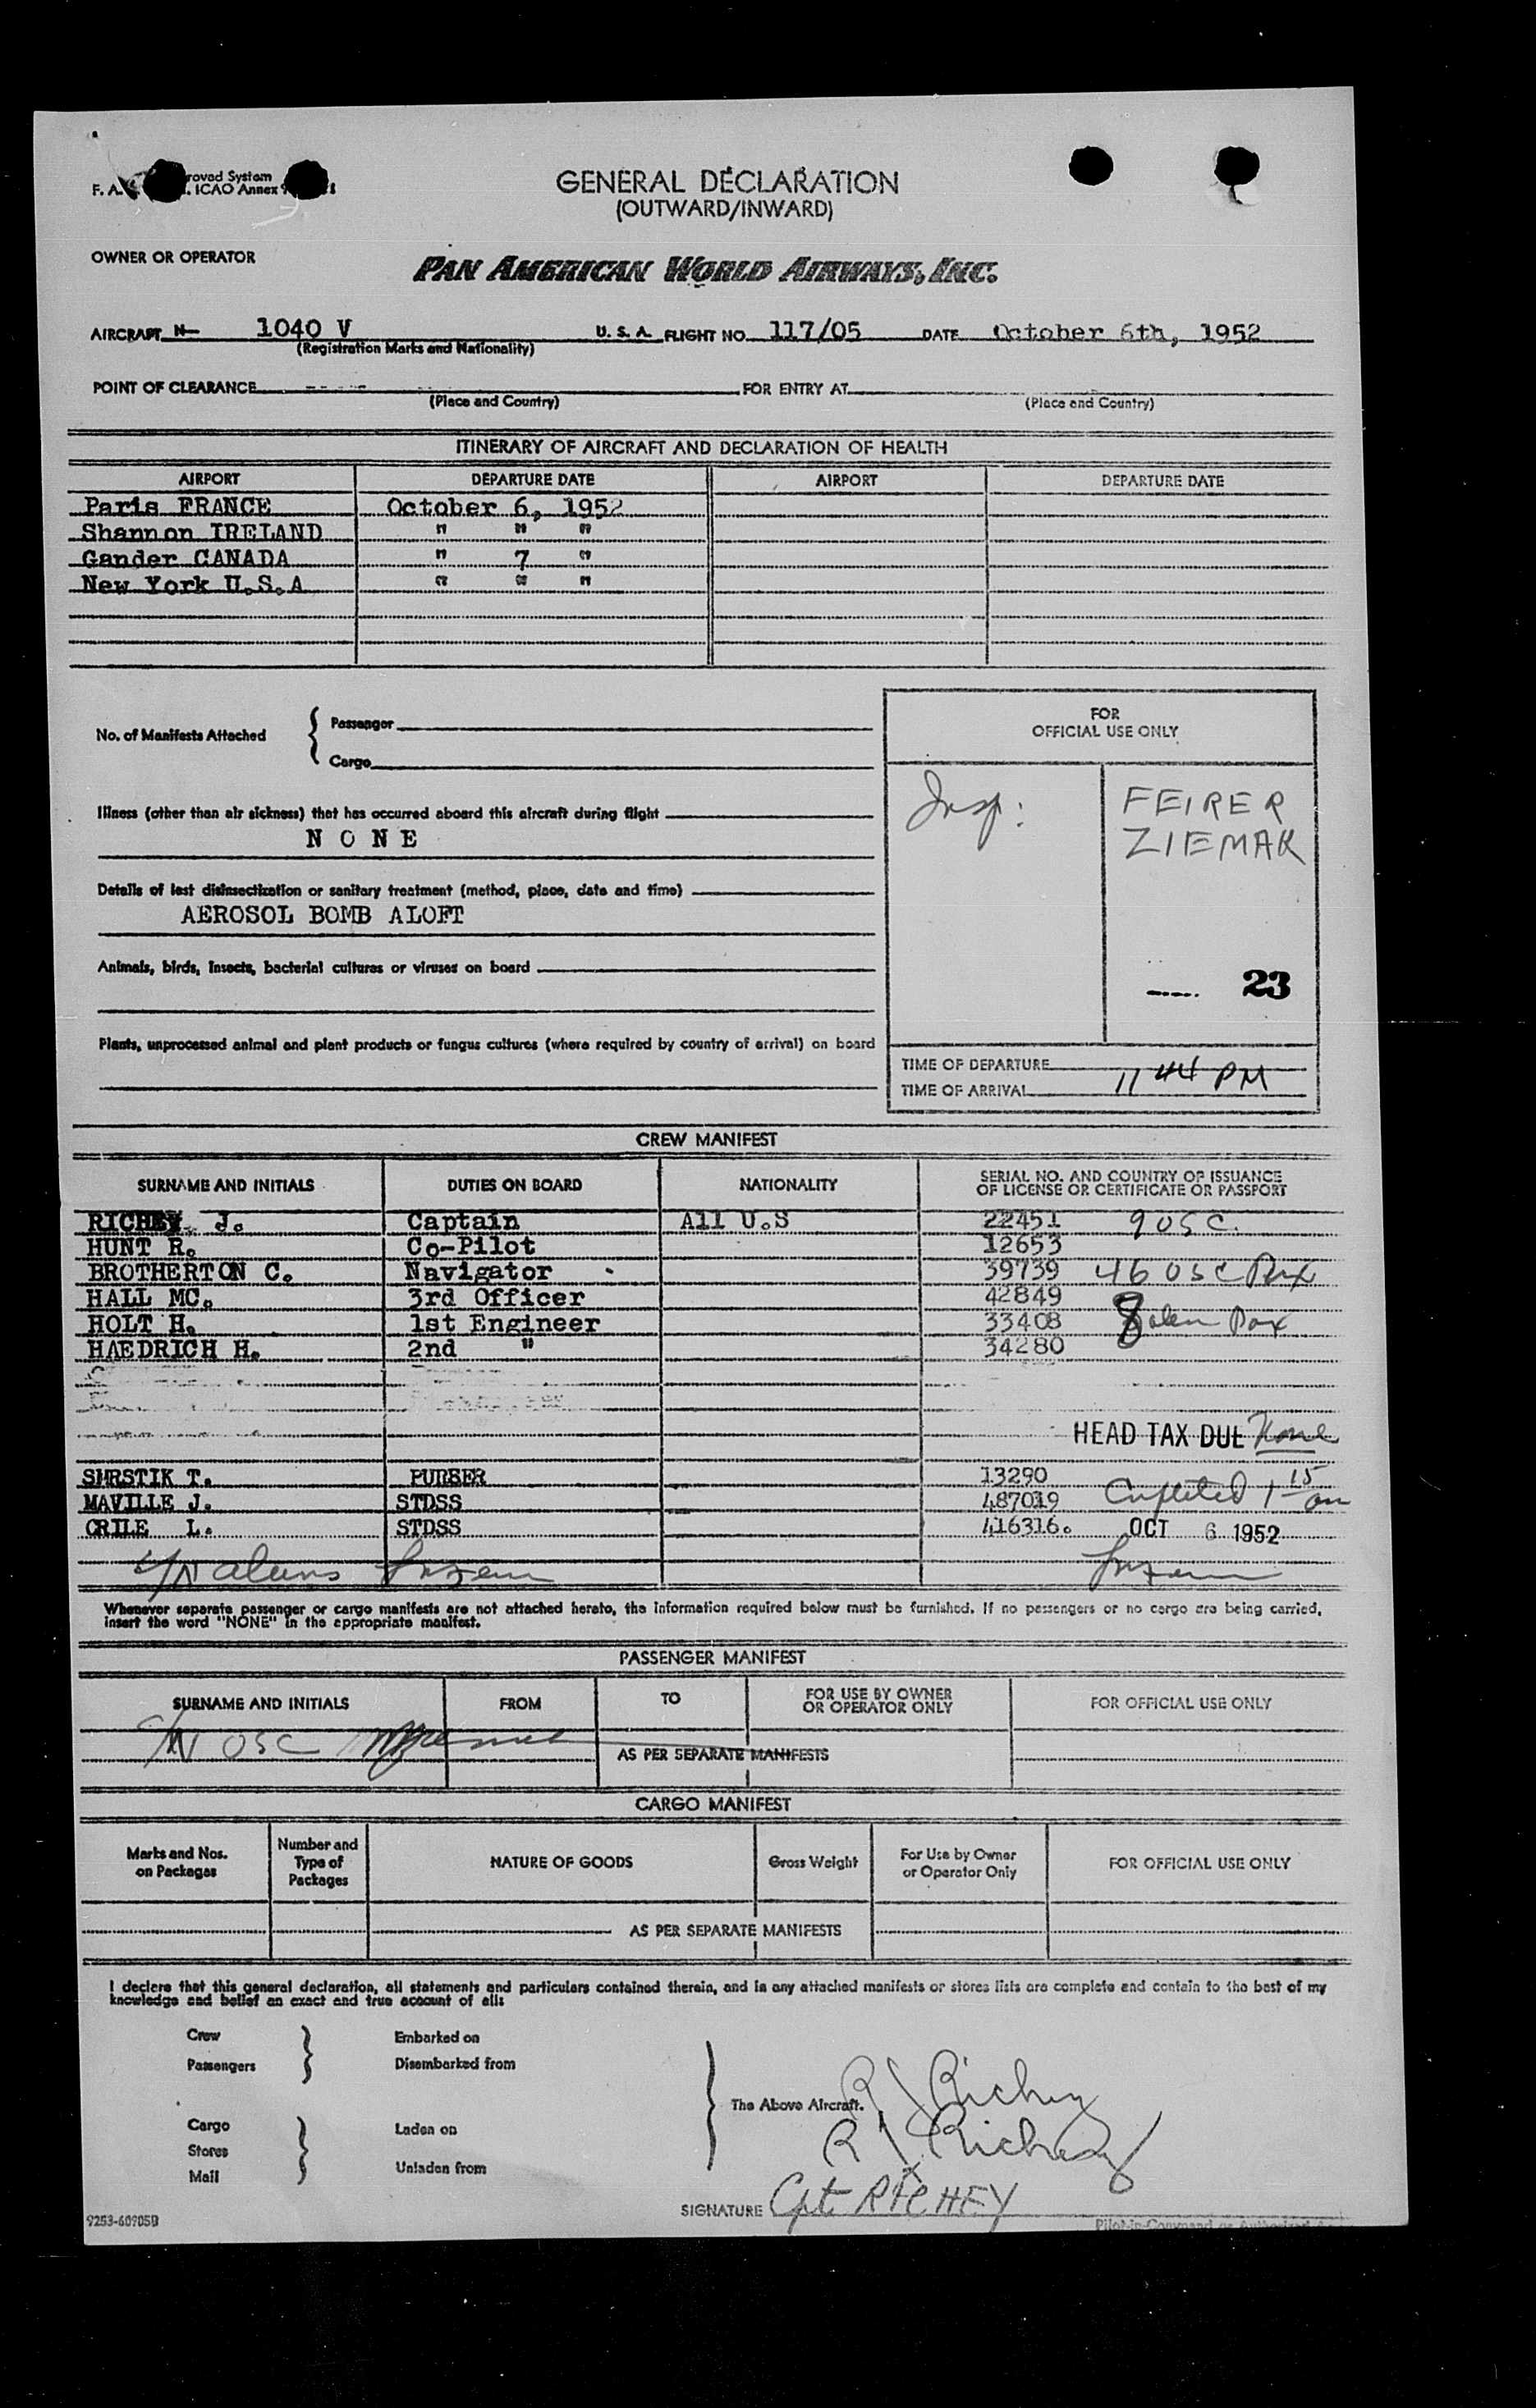 roved System
F. A. ICAO Annex 9
GENERAL DECLARATION
(OUTWARD/INWARD)
OWNER OR OPERATOR
PAN AMERICAN WORLD AIRWAYS, INC.
AIRCRAFT N- 1040 V U. S. A. FLIGHT NO. 117/05 DATE October 6th, 1952
(Registration Marks and Nationality)
POINT OF CLEARANCE FOR ENTRY AT
(Place and Country) (Place and Country)
ITINERARY OF AIRCRAFT AND DECLARATION OF HEALTH
AIRPORT DEPARTURE DATE AIRPORT DEPARTURE DATE
Paris FRANCE October 6, 1952
Shannon IRELAND " " "
Gander CANADA " 7 "
New York U.S.A " " "
No. of Manifests Attached { Passenger
Cargo
FOR
OFFICIAL USE ONLY
Insp: FEIRER
ZIEMAK
Illness (other than air sickness) that has occurred aboard this aircraft during flight
N O N E
Details of last disinsectization or sanitary treatment (method, place, date and time)
AEROSOL BOMB ALOFT
Animals, birds, insects, bacterial cultures or viruses on board
23
Plants, unprocessed animal and plant products or fungus cultures (where required by country of arrival) on board
TIME OF DEPARTURE
TIME OF ARRIVAL 11 44 PM
CREW MANIFEST
SURNAME AND INITIALS DUTIES ON BOARD NATIONALITY SERIAL NO. AND COUNTRY OF ISSUANCE
OF LICENSE OR CERTIFICATE OR PASSPORT
RICHEY J. Captain All U.S 22451 9 USC.
HUNT R. Co-Pilot 12653
BROTHERTON C. Navigator 39739 46 USC Pax
HALL MC. 3rd Officer 42849
HOLT H. 1st Engineer 33408 8 alien Pax
HAEDRICH H. 2nd " 34280
HEAD TAX DUE None
SMRSTIK T. PURSER 13290
MAVILLE J. STDSS 487019 Completed 1 15 am
CRILE L. STDSS 416316. OCT 6 1952
aliens
Whenever separate passenger or cargo manifests are not attached hereto, the information required below must be furnished. If no passengers or no cargo are being carried,
insert the word "NONE" in the appropriate manifest.
PASSENGER MANIFEST
SURNAME AND INITIALS FROM TO FOR USE BY OWNER
OR OPERATOR ONLY FOR OFFICIAL USE ONLY
USC
AS PER SEPARATE MANIFESTS
CARGO MANIFEST
Marks and Nos.
on Packages Number and
Type of
Packages NATURE OF GOODS Gross Weight For Use by Owner
or Operator Only FOR OFFICIAL USE ONLY
AS PER SEPARATE MANIFESTS
I declare that this general declaration, all statements and particulars contained therein, and in any attached manifests or stores lists are complete and contain to the best of my
knowledge and belief an exact and true account of all:
Crew Embarked on
Passengers Disembarked from
The Above Aircraft.
R J Richey
R J Richey
Cargo Laden on
Stores
Mail Unladen from
SIGNATURE Cpt. RICHEY
9253-60905D Pilot-in-Command or Authorized